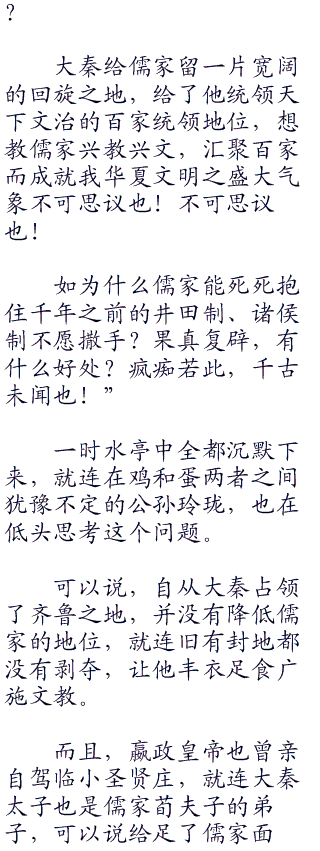 ？
大秦给儒家留一片宽阔
的回旋之地，给了他统领天
下文治的百家统领地位，想
教儒家兴教兴文，汇聚百家
而成就我华夏文明之盛大气
象不可思议也！不可思议
也！
如为什么儒家能死死抱
住千年之前的井田制、诸侯
制不愿撒手？果真复辟，有
什么好处？疯痴若此，千古
未闻也！”
一时水亭中全都沉默下
来，就连在鸡和蛋两者之间
犹豫不定的公孙玲珑，也在
低头思考这个问题。
可以说，自从大秦占领
了齐鲁之地，并没有降低儒
家的地位，就连旧有封地都
没有剥夺，让他丰衣足食广
施文教。
而且，嬴政皇帝也曾亲
自驾临小圣贤庄，就连大秦
太子也是儒家荀夫子的弟
子，可以说给足了儒家面